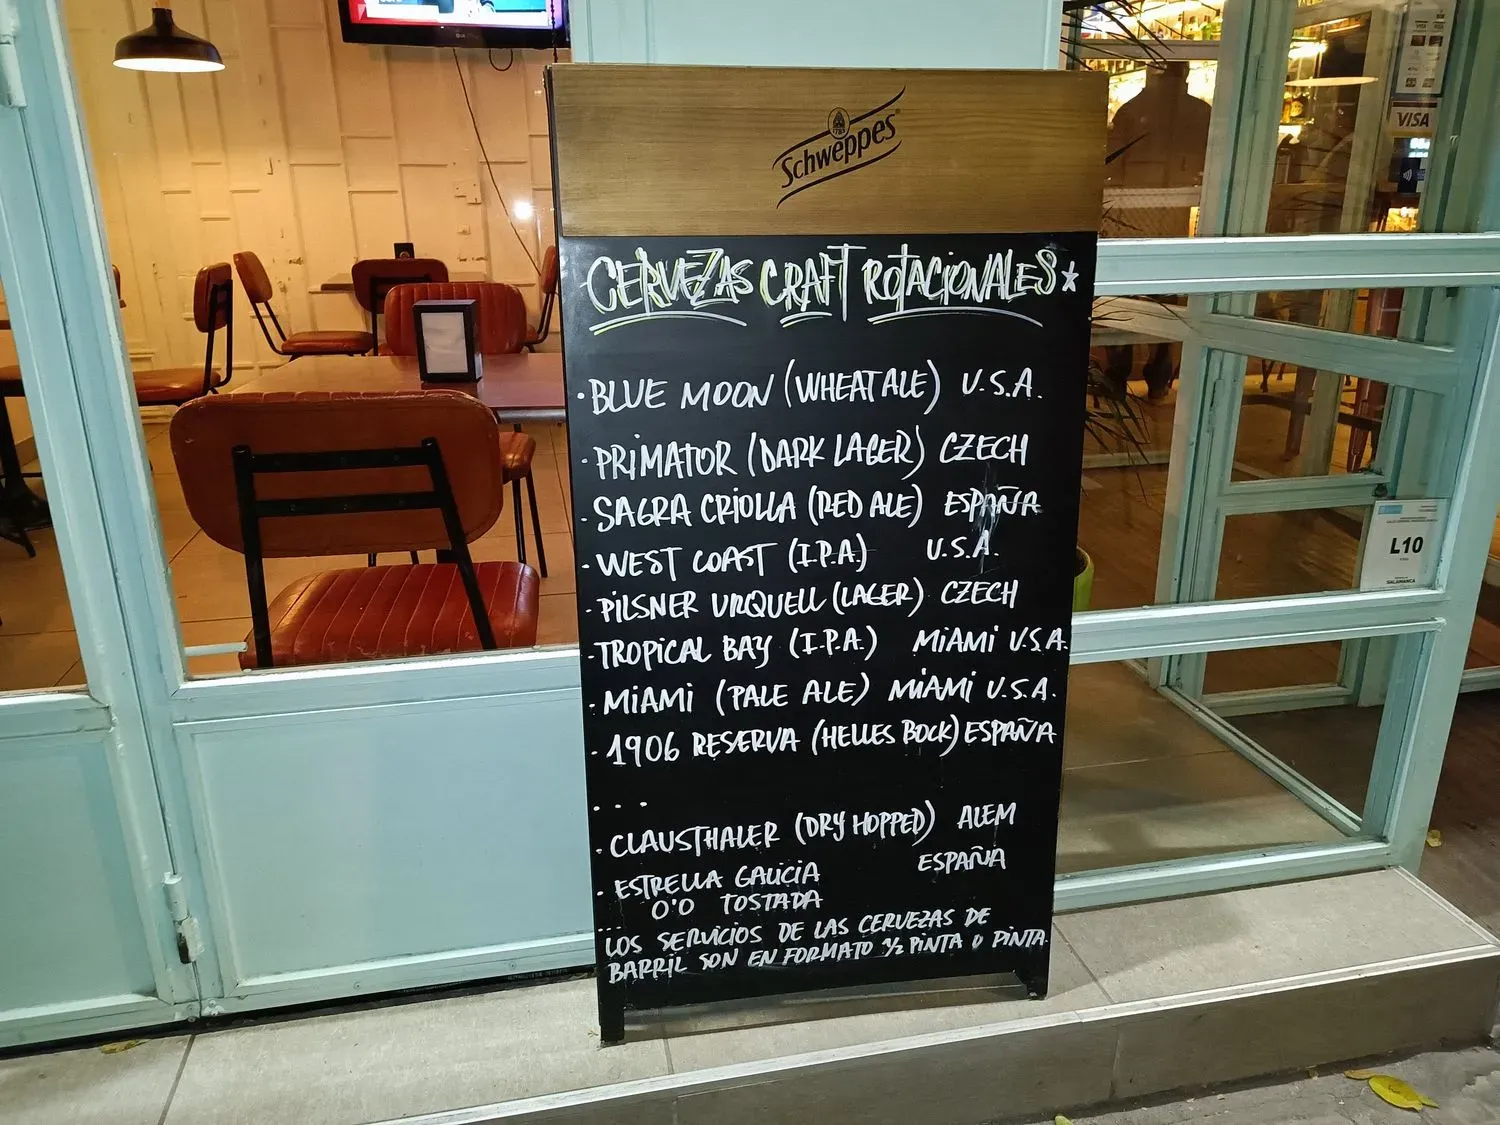 Schweppes
CERVEZAS CRAFT ROTACIONALES*
· BLUE MOON (WHEAT ALE) U.S.A.
· PRIMATOR (DARK LAGER) CZECH
· SAGRA CRIOLLA (RED ALE) ESPAÑA
· WEST COAST (I.P.A.) U.S.A.
· PILSNER URQUELL (LAGER) CZECH
· TROPICAL BAY (I.P.A.) MIAMI U.S.A.
· MIAMI (PALE ALE) MIAMI U.S.A.
· 1906 RESERVA (HELLES BOCK) ESPAÑA
...
· CLAUSTHALER (DRY HOPPED) ALEM
· ESTRELLA GALICIA ESPAÑA
0'0 TOSTADA
...
LOS SERVICIOS DE LAS CERVEZAS DE
BARRIL SON EN FORMATO 1/2 PINTA O PINTA.
VISA
L10
SALAMANCA